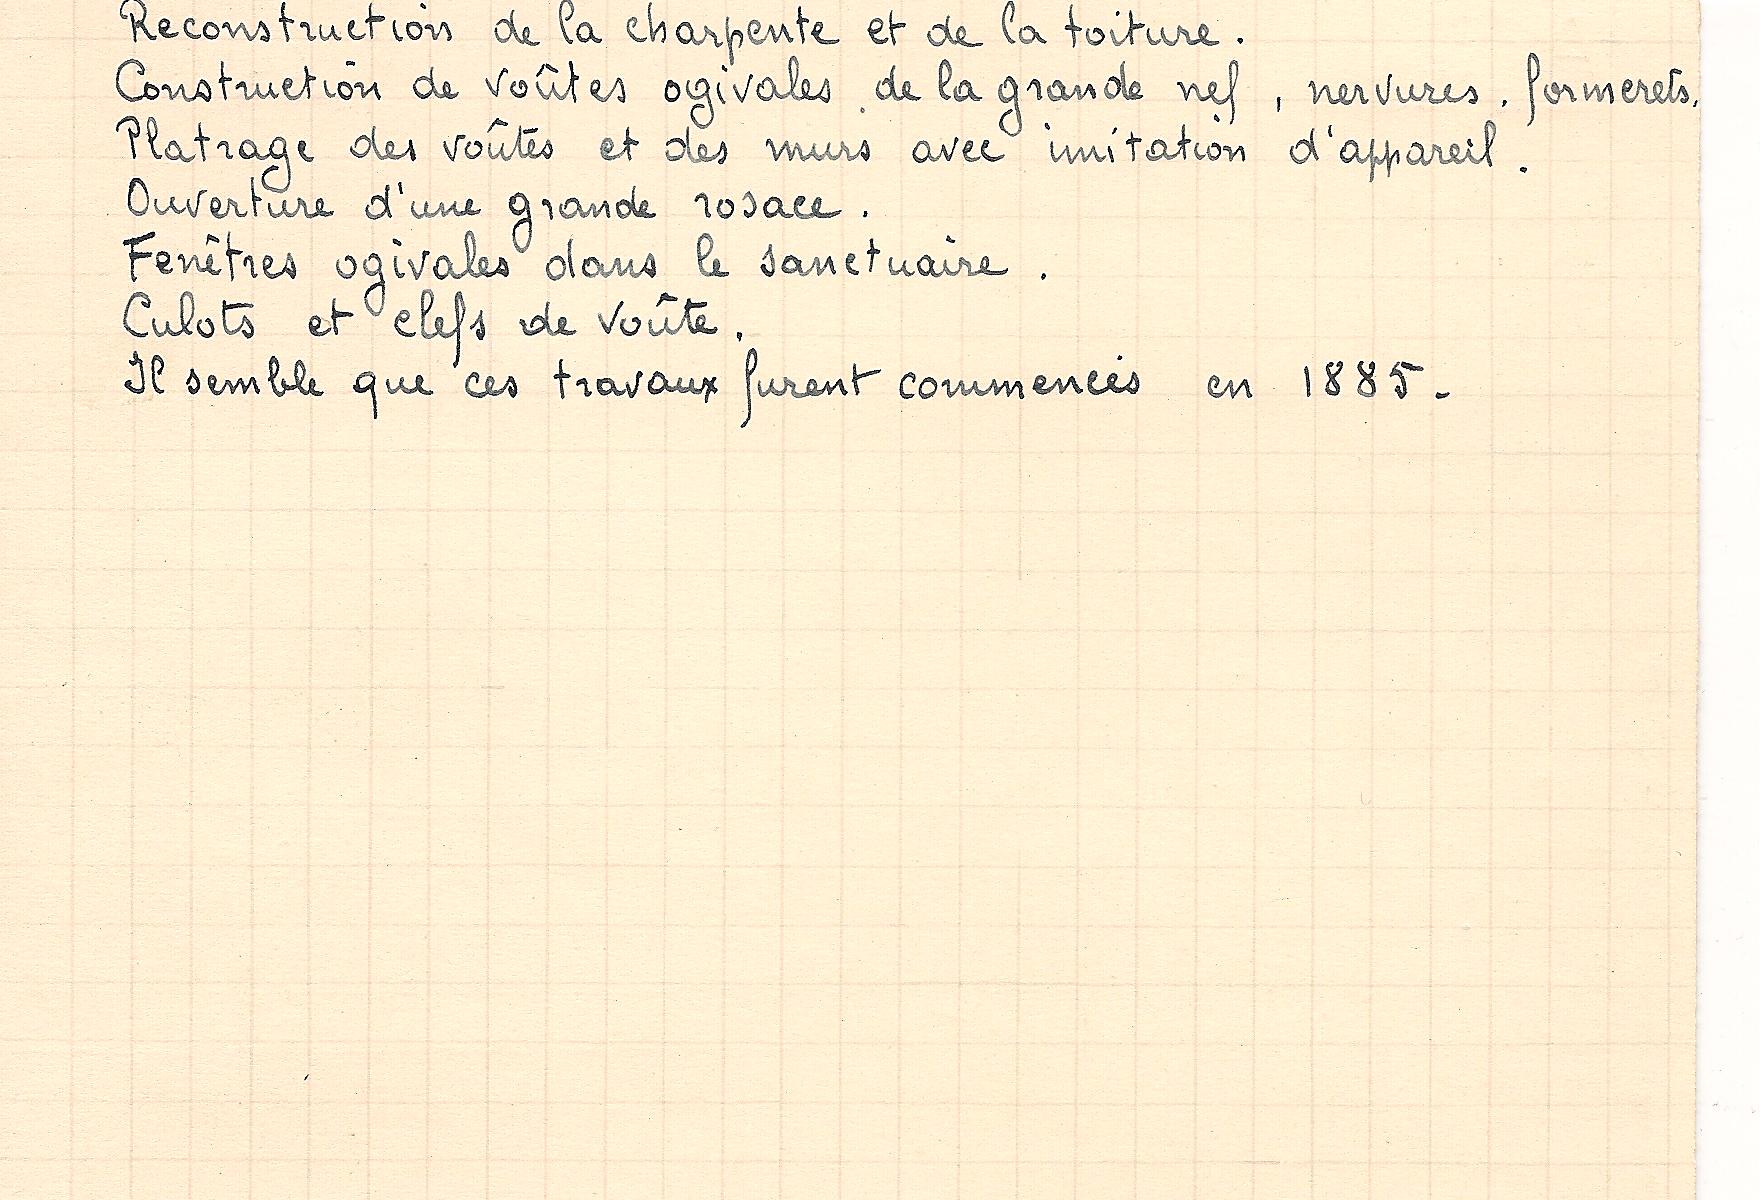 Reconstruction de la charpente et de la toiture.
Construction de voûtes ogivales de la grande nef, nervures, formerets.
Platrage des voûtes et des murs avec imitation d'appareil.
Ouverture d'une grande rosace.
Fenêtres ogivales dans le sanctuaire.
Culots et clefs de voûte.
Il semble que ces travaux furent commencés en 1885.